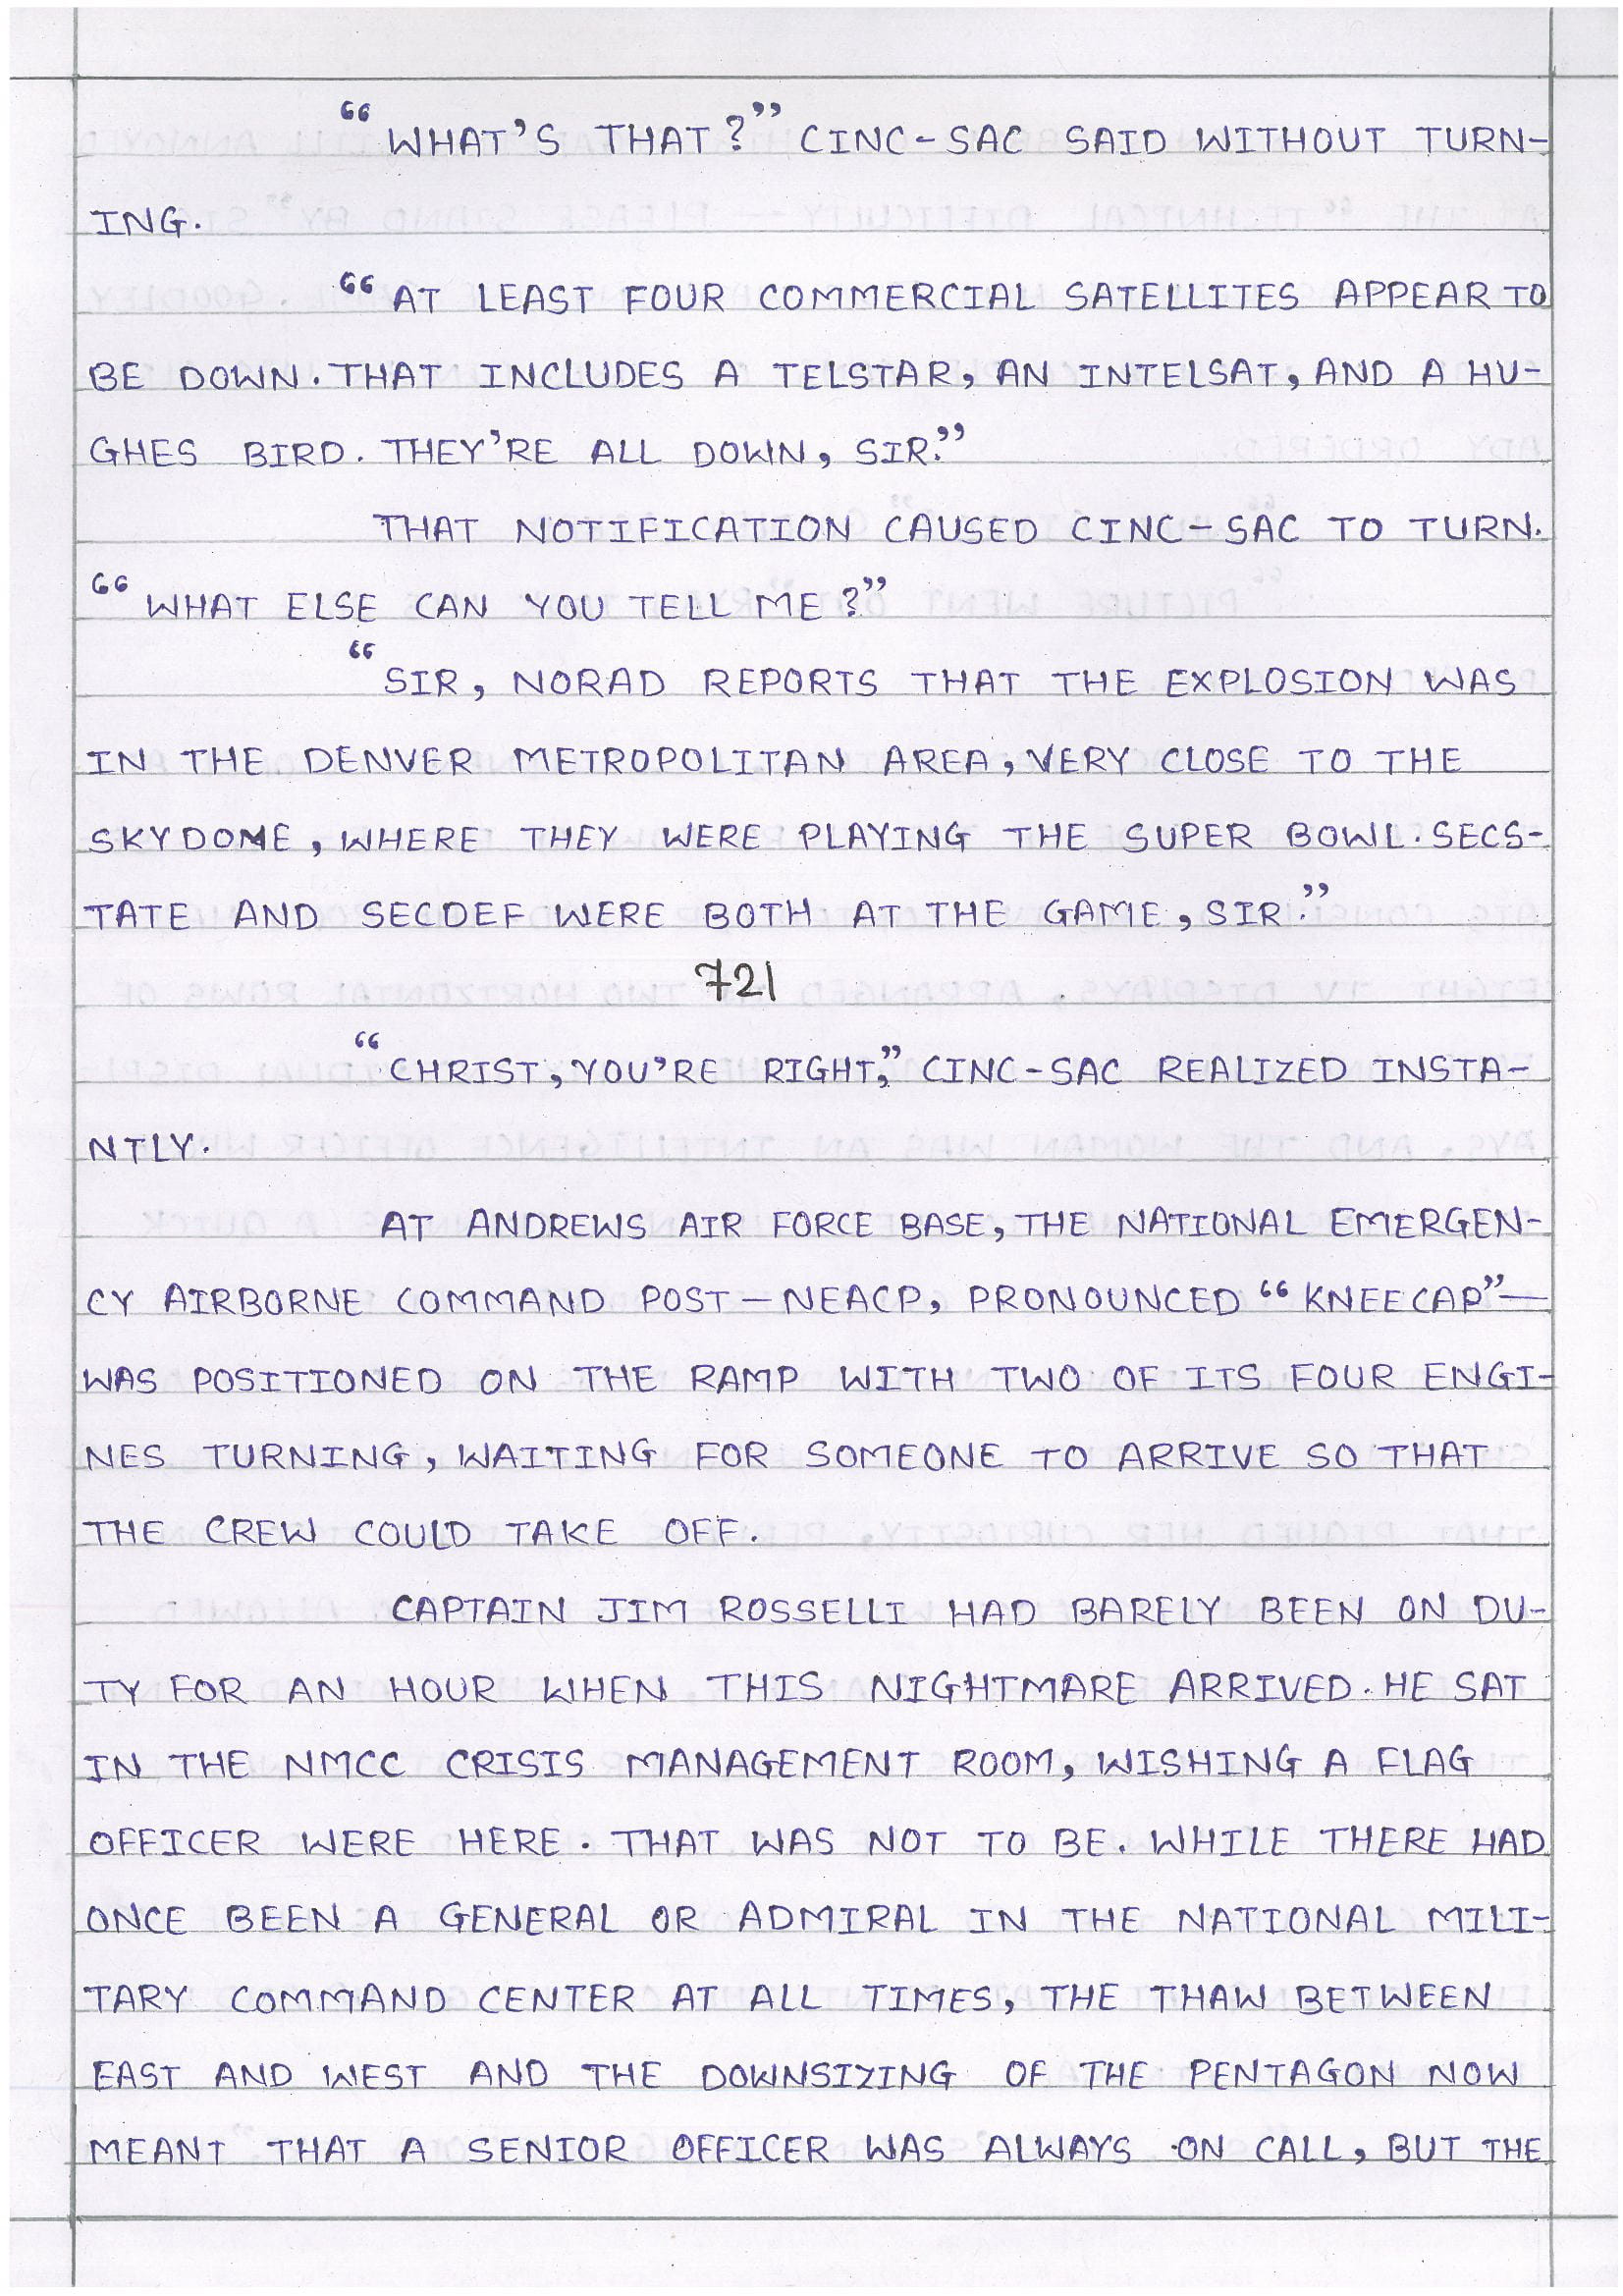 “WHAT’S THAT?” CINC-SAC SAID WITHOUT TURN-
ING.
“AT LEAST FOUR COMMERCIAL SATELLITES APPEAR TO
BE DOWN. THAT INCLUDES A TELSTAR, AN INTELSAT, AND A HU-
GHES BIRD. THEY’RE ALL DOWN, SIR.”
THAT NOTIFICATION CAUSED CINC-SAC TO TURN.
“WHAT ELSE CAN YOU TELL ME?”
“SIR, NORAD REPORTS THAT THE EXPLOSION WAS
IN THE DENVER METROPOLITAN AREA, VERY CLOSE TO THE
SKYDOME, WHERE THEY WERE PLAYING THE SUPER BOWL. SECS-
TATE AND SECDEF WERE BOTH AT THE GAME, SIR.”
721
“CHRIST, YOU’RE RIGHT,” CINC-SAC REALIZED INSTA-
NTLY.
AT ANDREWS AIR FORCE BASE, THE NATIONAL EMERGEN-
CY AIRBORNE COMMAND POST — NEACP, PRONOUNCED “KNEECAP” —
WAS POSITIONED ON THE RAMP WITH TWO OF ITS FOUR ENGI-
NES TURNING, WAITING FOR SOMEONE TO ARRIVE SO THAT
THE CREW COULD TAKE OFF.
CAPTAIN JIM ROSSELLI HAD BARELY BEEN ON DU-
TY FOR AN HOUR WHEN THIS NIGHTMARE ARRIVED. HE SAT
IN THE NMCC CRISIS MANAGEMENT ROOM, WISHING A FLAG
OFFICER WERE HERE. THAT WAS NOT TO BE. WHILE THERE HAD
ONCE BEEN A GENERAL OR ADMIRAL IN THE NATIONAL MILI-
TARY COMMAND CENTER AT ALL TIMES, THE THAW BETWEEN
EAST AND WEST AND THE DOWNSIZING OF THE PENTAGON NOW
MEANT THAT A SENIOR OFFICER WAS ALWAYS ON CALL, BUT THE